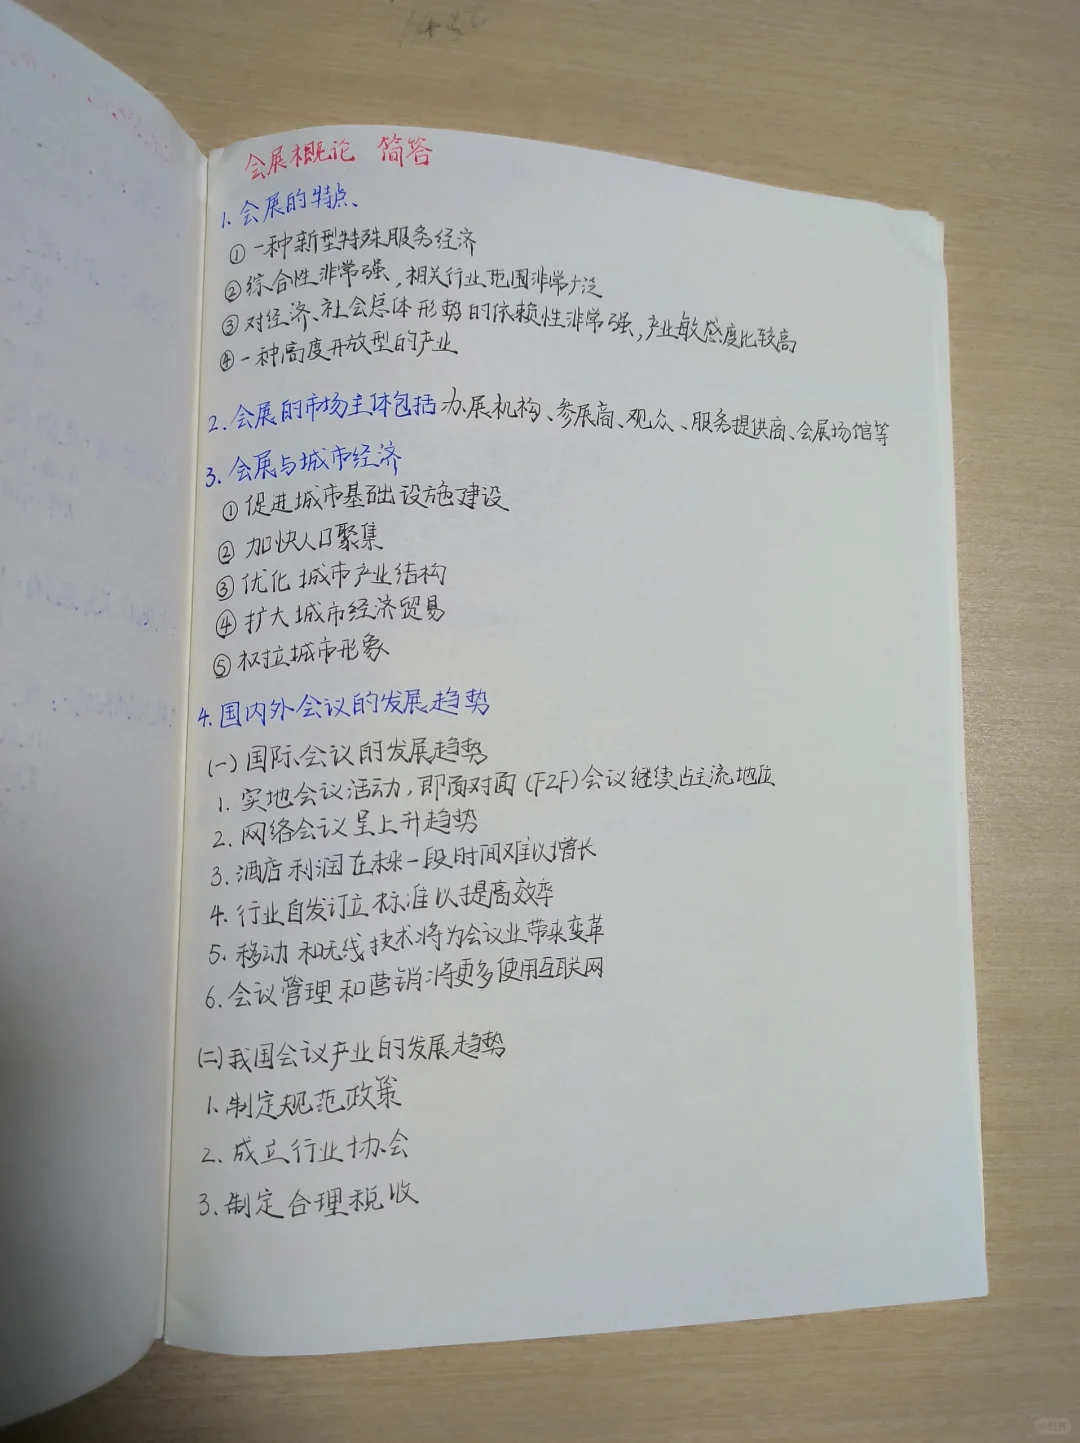 会展概论 简答
1. 会展的特点、
① 一种新型特殊服务经济
② 综合性非常强，相关行业范围非常广泛
③ 对经济、社会总体形势的依赖性非常强，产业敏感度比较高
④ 一种高度开放型的产业
2. 会展的市场主体包括办展机构、参展商、观众、服务提供商、会展场馆等
3. 会展与城市经济
① 促进城市基础设施建设
② 加快人口聚集
③ 优化城市产业结构
④ 扩大城市经济贸易
⑤ 权拉城市形象
4. 国内外会议的发展趋势
(一) 国际会议的发展趋势
1. 实地会议活动，即面对面 (F2F) 会议继续占主流地位
2. 网络会议呈上升趋势
3. 酒店利润在未来一段时间难以增长
4. 行业自发订立标准以提高效率
5. 移动和无线技术将为会议业带来变革
6. 会议管理和营销将更多使用互联网
(二) 我国会议产业的发展趋势
1. 制定规范政策
2. 成立行业协会
3. 制定合理税收